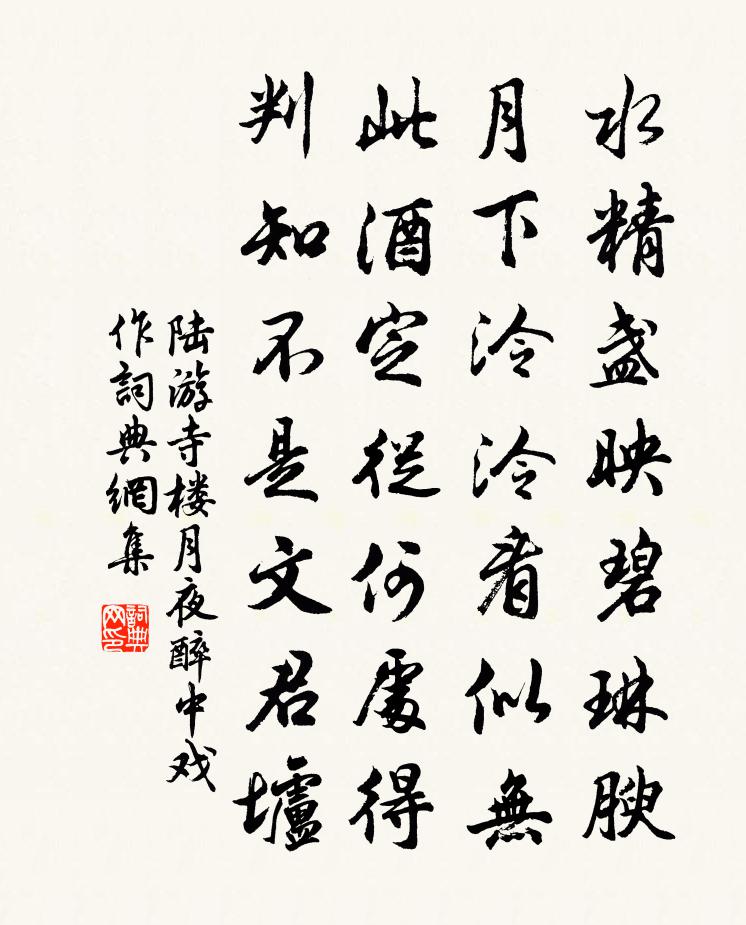 水精盏映碧琳腴
月下泠泠看似無
此酒定從何處得
判知不是文君壚
陆游寺楼月夜醉中戏
作詞典網集
詞典
网印